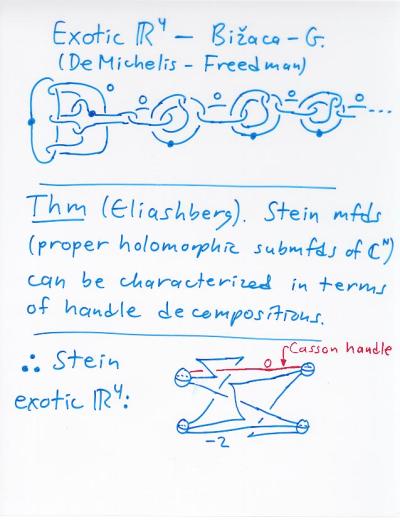 Exotic ℝ⁴ – Bižaca – G.
(DeMichelis – Freedman)
0
0 0 0 0 ...
Thm (Eliashberg). Stein mfds
(proper holomorphic submfds of ℂᴺ)
can be characterized in terms
of handle decompositions.
∴ Stein
exotic ℝ⁴:
Casson handle
0
-2